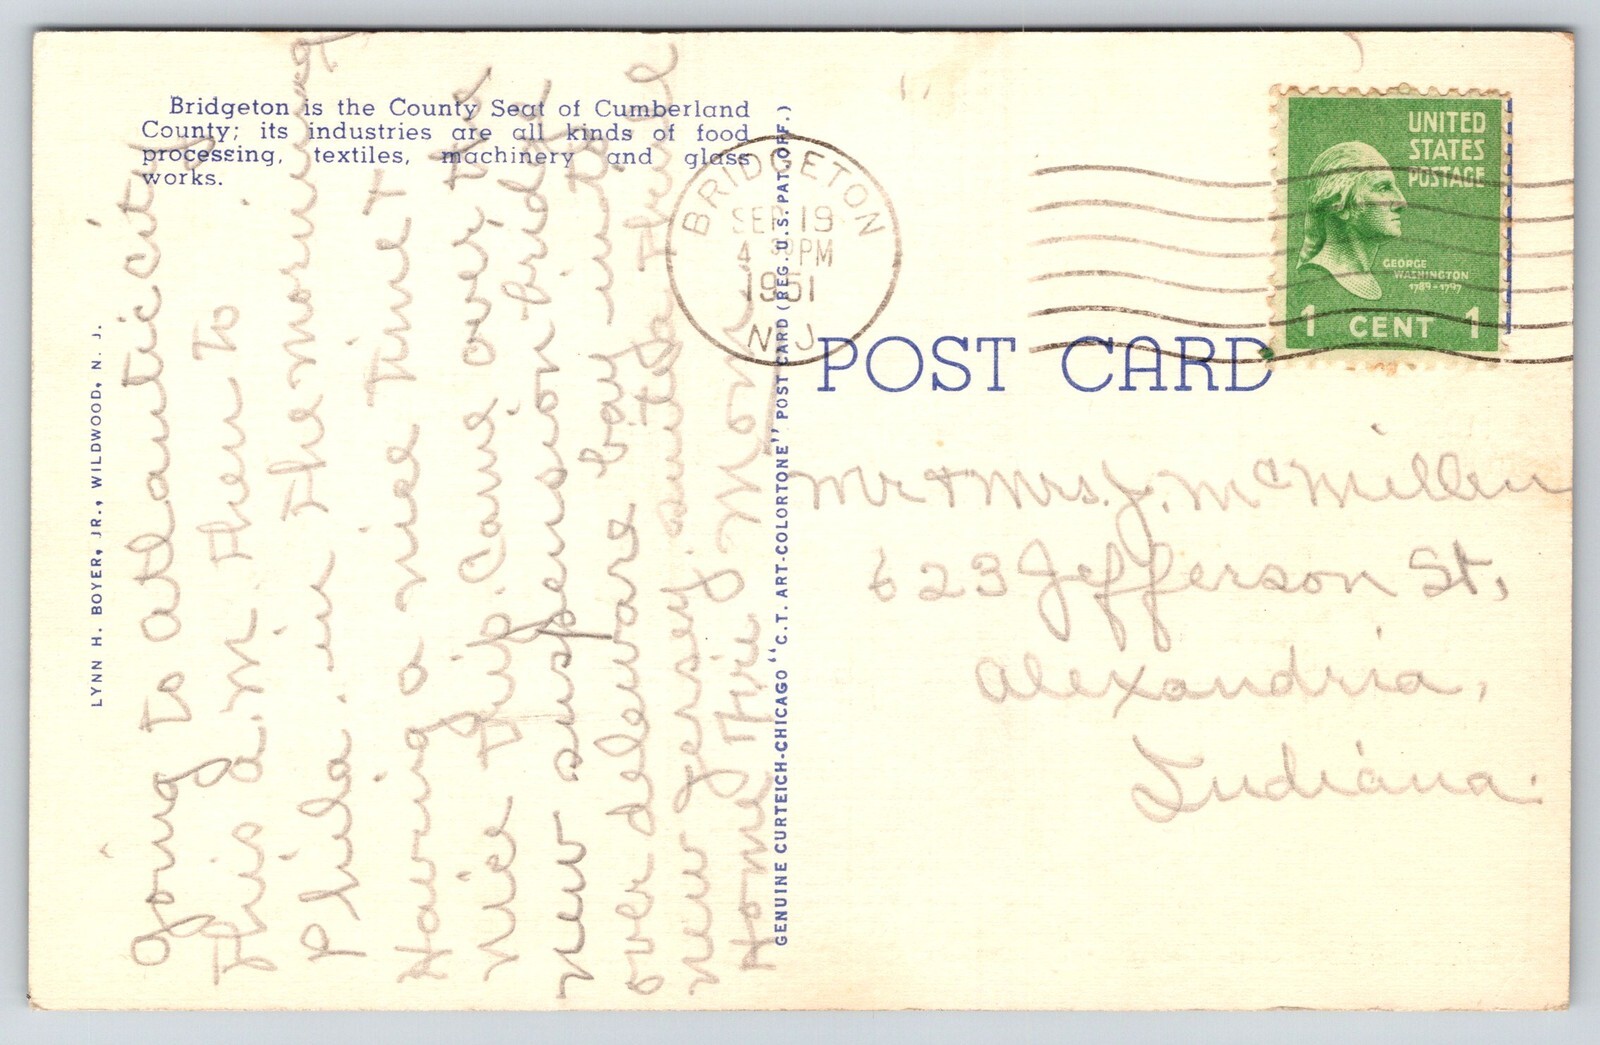 Bridgeton is the County Seat of Cumberland
County; its industries are all kinds of food
processing, textiles, machinery and glass
works.
LYNN H. BOYER, JR., WILDWOOD, N. J.
going to atlantic city
This a.m. then to
Phila. in the morning
Having a nice time &
nice trip. Came over the
new suspension bridge
over deleware bay into
new jersey. 
Home Fri Mon
GENUINE CURTEICH-CHICAGO "C.T. ART-COLORTONE" POST CARD (REG. U.S. PAT. OFF.)
BRIDGETON
SEP 19
4 30 PM
1951
N.J.
UNITED
STATES
POSTAGE
GEORGE
WASHINGTON
1789-1797
1 CENT 1
POST CARD
Mr & Mrs. J. McMillen
623 Jefferson St,
Alexandria,
Indiana.